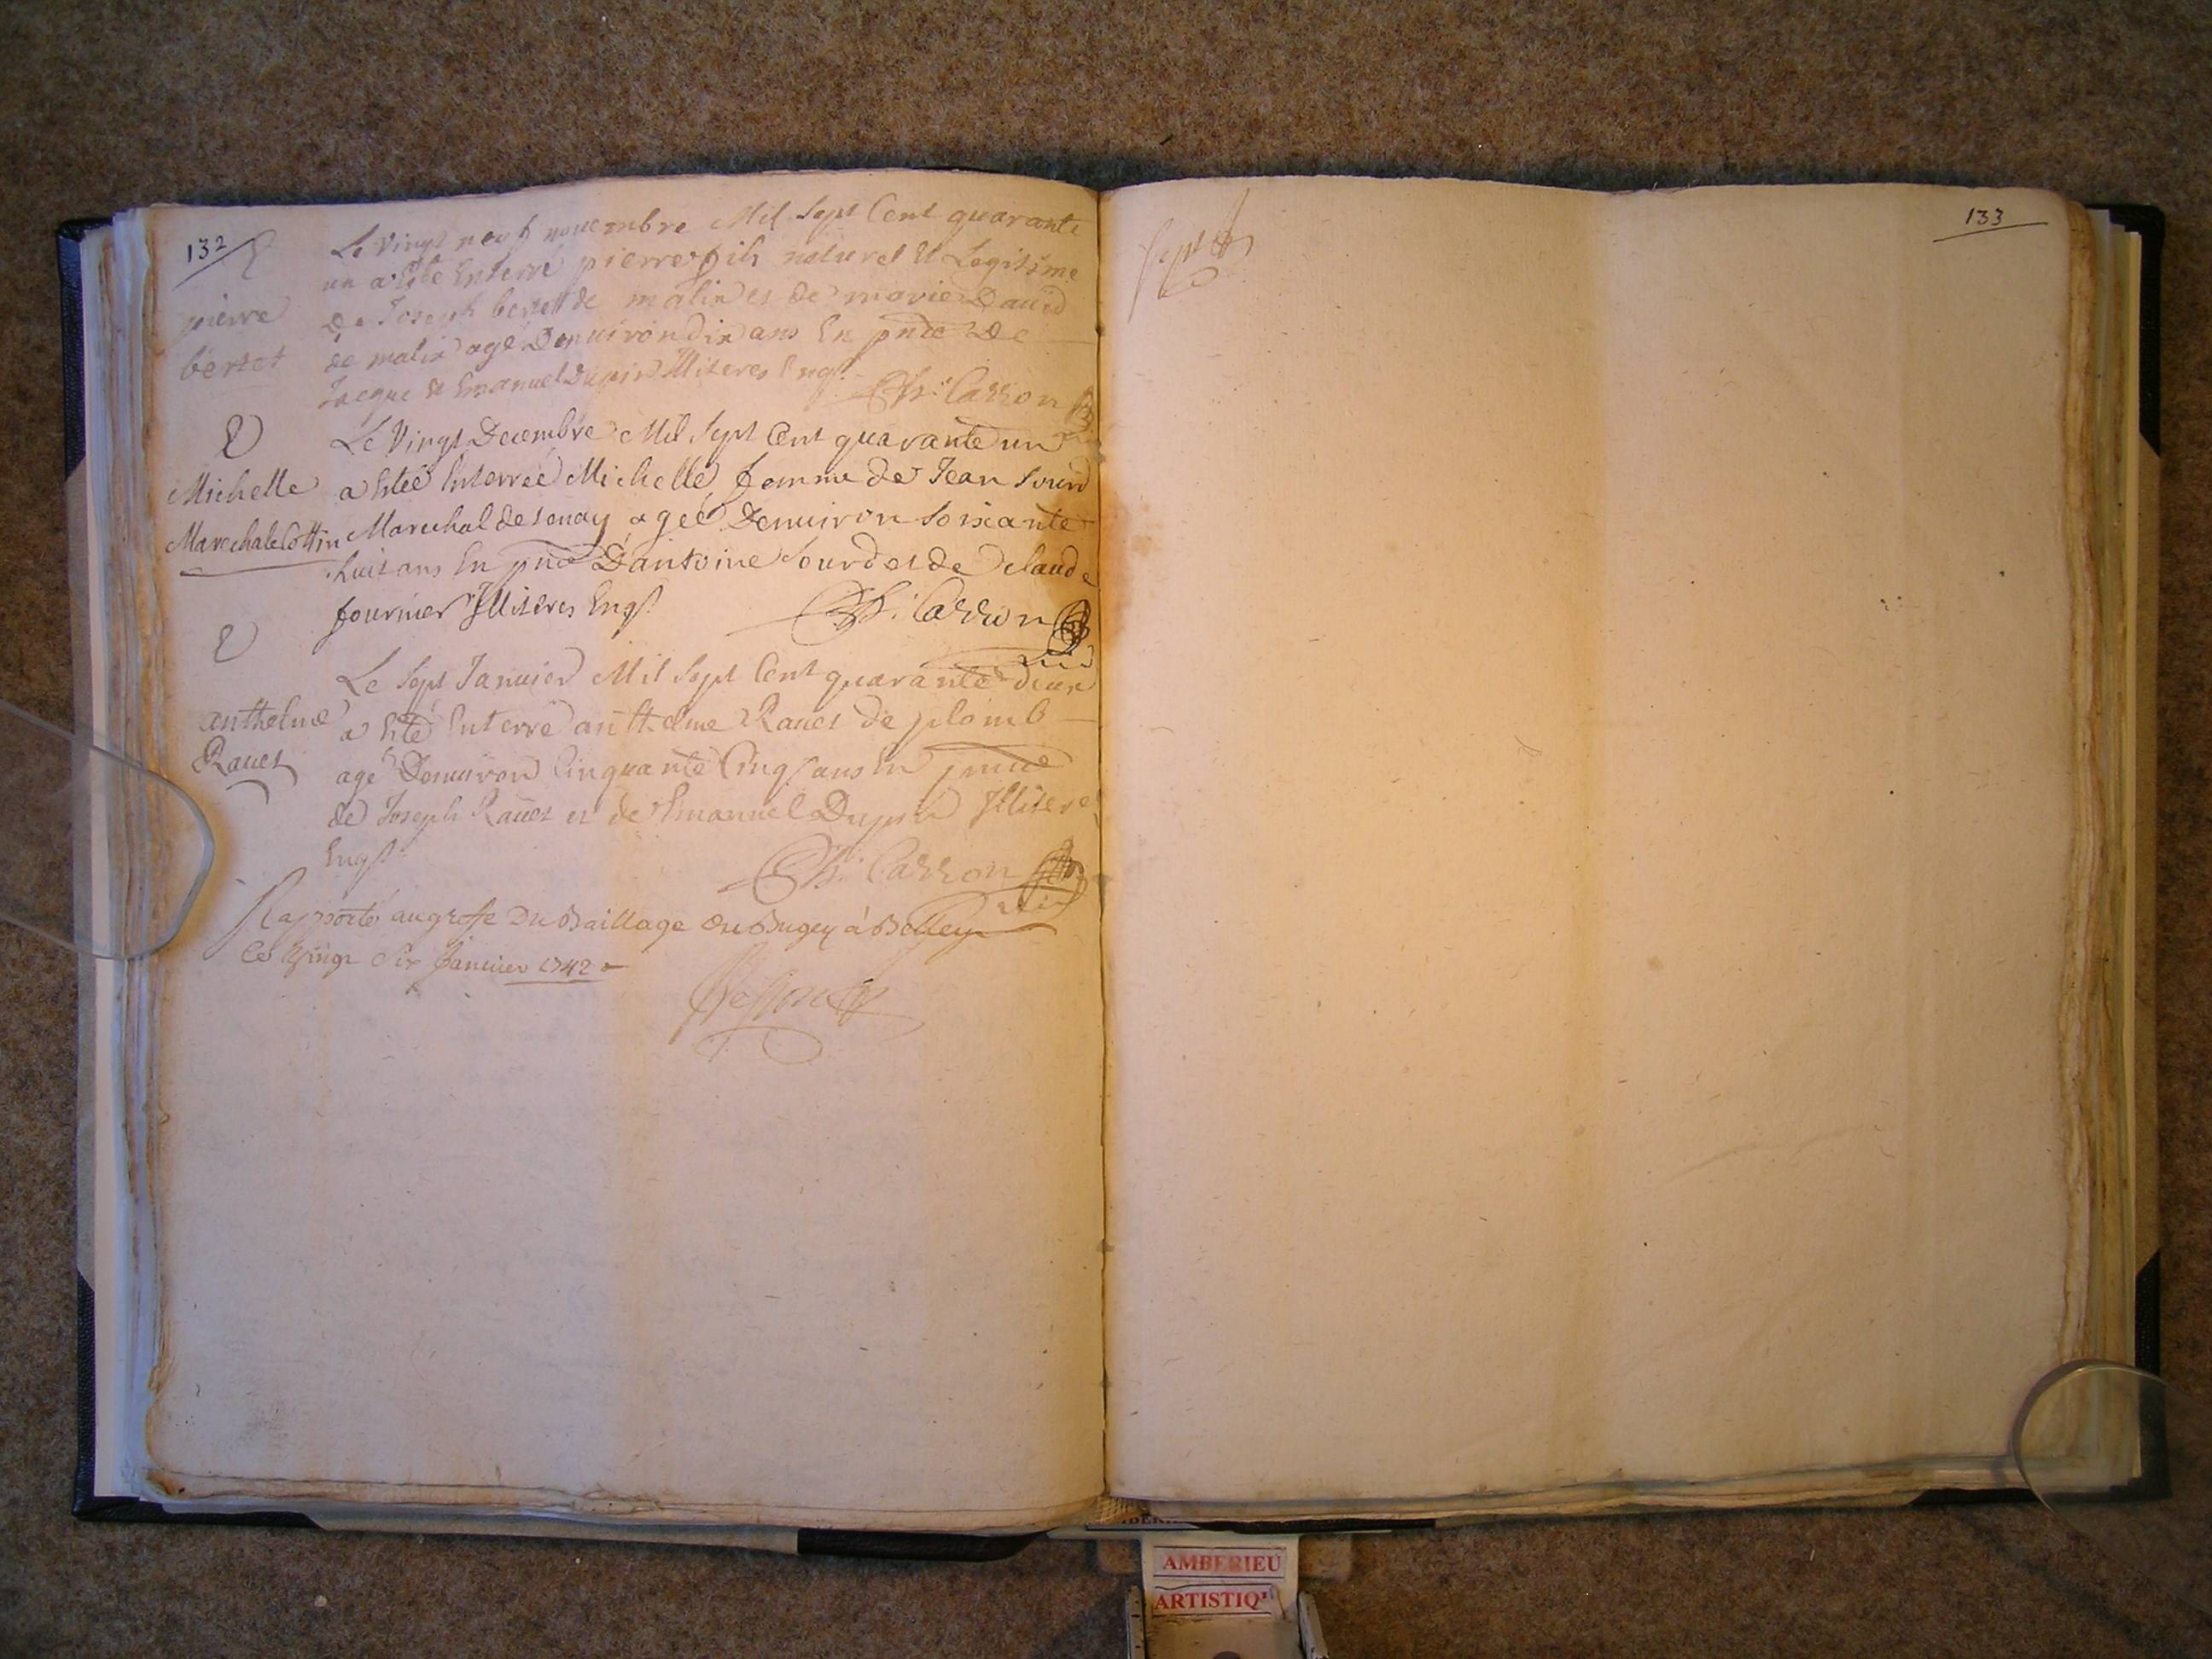 132
E
pierre
bertet
Le Vingt neuf novembre Mil Sept Cent quarante
un a Esté Enterré pierre fils naturel Et Legitime
de Joseph bertet de malix et de marie David
de malix agé Denuiron dix ans En pnce De
Jacque & Emanuel Dupin Illiteres Enqs
Carron
E
Michelle
Marechale Cottin
Le Vingt Decembre Mil Sept Cent quarante un
a Estée Enterreé Michelle femme de Jean Sourd
Marechal de tenay ageé Denuiron Soixante
huit ans En pnce D'antoine Sourd et de Claude
fournier Illiteres Enqs
Carron
E
anthelme
Rauet
Le Sept Januier Mil Sept Cent quarante deux
a Eté Enterré anthelme Rauet de plomb
agé Denuiron Cinquante Cinq ans En pnce
de Joseph Rauet et de Emanuel Dupin Illitere
Enqs
Carron
Rapporté au greffe Du Baillage du Bugey à Belley
Ce Vingt Six Januier 1742
133
AMBERIEU
ARTISTIQ'